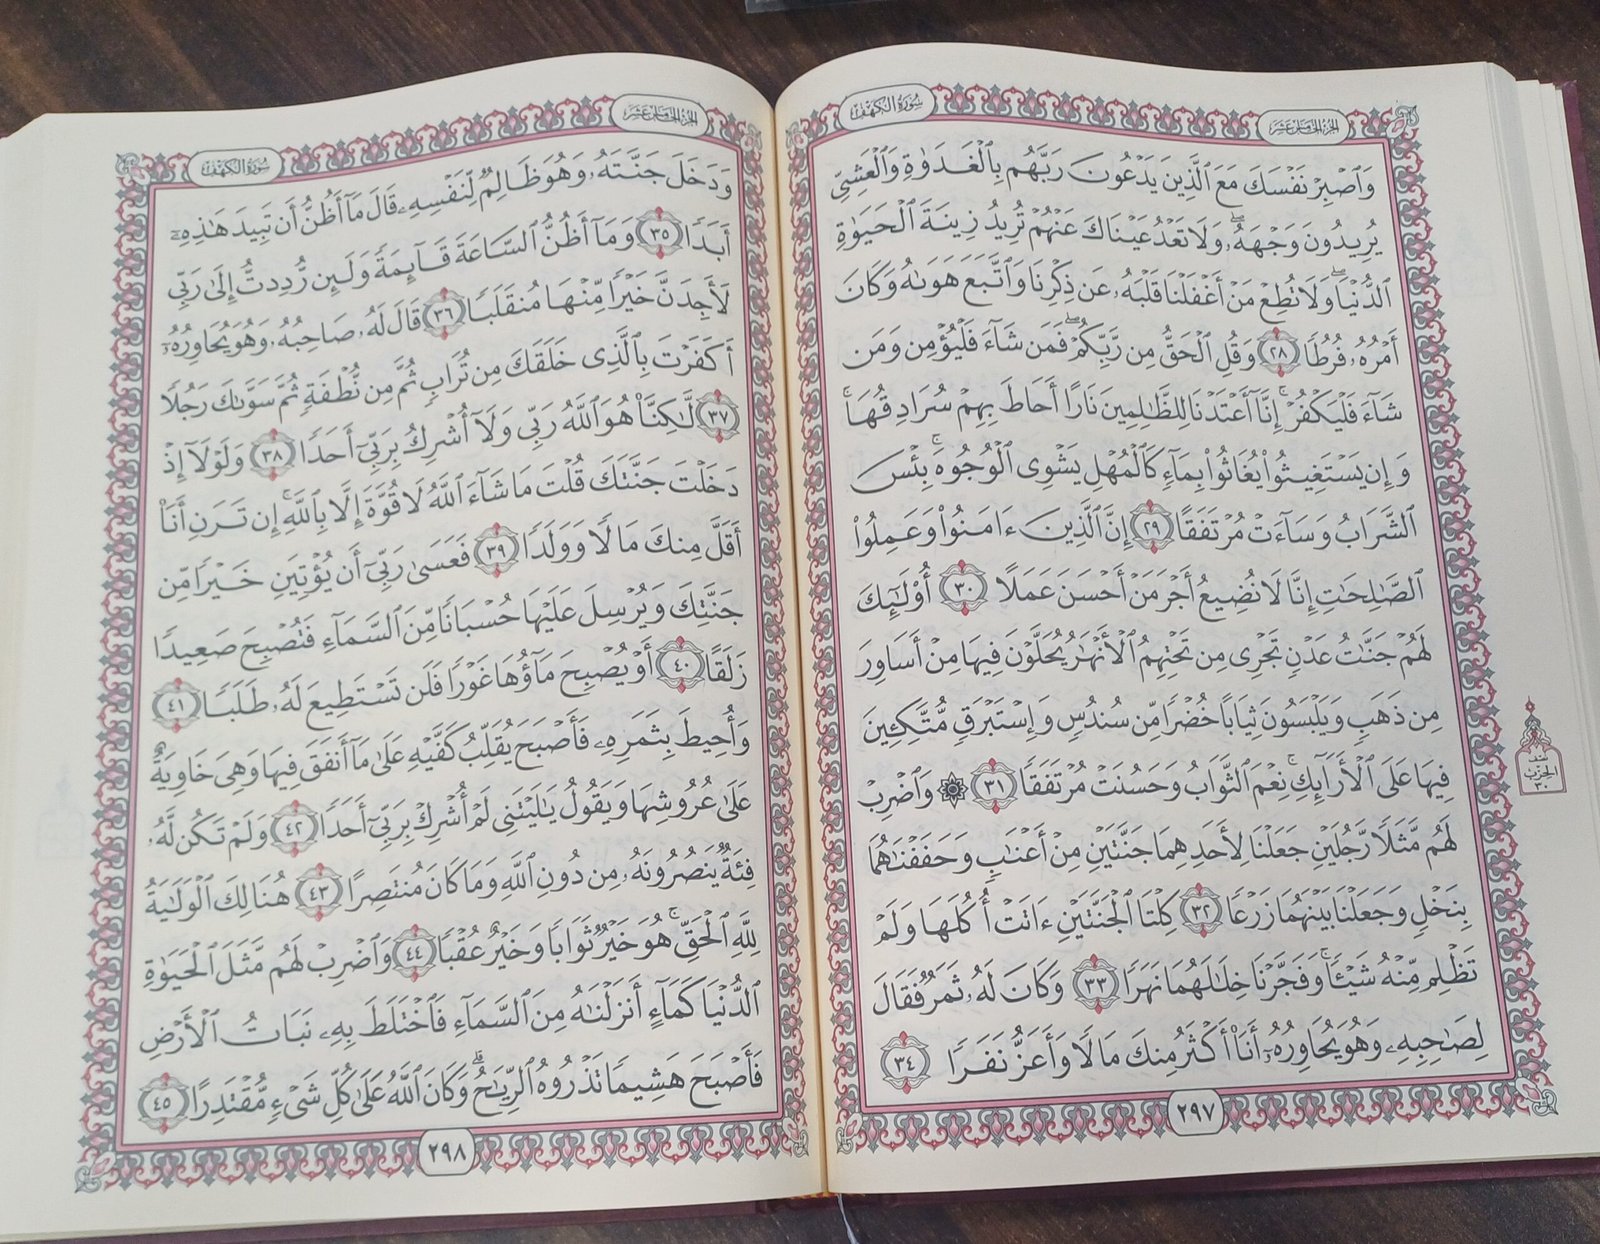 سورة الكهف
الجزء الخامس عشر
وَٱصۡبِرۡ نَفۡسَكَ مَعَ ٱلَّذِينَ يَدۡعُونَ رَبَّهُم بِٱلۡغَدَوٰةِ وَٱلۡعَشِيِّ
يُرِيدُونَ وَجۡهَهُۥۖ وَلَا تَعۡدُ عَيۡنَاكَ عَنۡهُمۡ تُرِيدُ زِينَةَ ٱلۡحَيَوٰةِ
ٱلدُّنۡيَاۖ وَلَا تُطِعۡ مَنۡ أَغۡفَلۡنَا قَلۡبَهُۥ عَن ذِكۡرِنَا وَٱتَّبَعَ هَوَىٰهُ وَكَانَ
أَمۡرُهُۥ فُرُطٗا ٢٨ وَقُلِ ٱلۡحَقُّ مِن رَّبِّكُمۡۖ فَمَن شَآءَ فَلۡيُؤۡمِن وَمَن
شَآءَ فَلۡيَكۡفُرۡۚ إِنَّآ أَعۡتَدۡنَا لِلظَّٰلِمِينَ نَارًا أَحَاطَ بِهِمۡ سُرَادِقُهَاۚ
وَإِن يَسۡتَغِيثُواْ يُغَاثُواْ بِمَآءٖ كَٱلۡمُهۡلِ يَشۡوِي ٱلۡوُجُوهَۚ بِئۡسَ
ٱلشَّرَابُ وَسَآءَتۡ مُرۡتَفَقًا ٢٩ إِنَّ ٱلَّذِينَ ءَامَنُواْ وَعَمِلُواْ
ٱلصَّٰلِحَٰتِ إِنَّا لَا نُضِيعُ أَجۡرَ مَنۡ أَحۡسَنَ عَمَلًا ٣٠ أُوْلَٰٓئِكَ
لَهُمۡ جَنَّٰتُ عَدۡنٖ تَجۡرِي مِن تَحۡتِهِمُ ٱلۡأَنۡهَٰرُ يُحَلَّوۡنَ فِيهَا مِنۡ أَسَاوِرَ
مِن ذَهَبٖ وَيَلۡبَسُونَ ثِيَابًا خُضۡرٗا مِّن سُندُسٖ وَإِسۡتَبۡرَقٖ مُّتَّكِـِٔينَ
فِيهَا عَلَى ٱلۡأَرَآئِكِۚ نِعۡمَ ٱلثَّوَابُ وَحَسُنَتۡ مُرۡتَفَقٗا ٣١ ۞ وَٱضۡرِبۡ
لَهُم مَّثَلٗا رَّجُلَيۡنِ جَعَلۡنَا لِأَحَدِهِمَا جَنَّتَيۡنِ مِنۡ أَعۡنَٰبٖ وَحَفَفۡنَٰهُمَا
بِنَخۡلٖ وَجَعَلۡنَا بَيۡنَهُمَا زَرۡعٗا ٣٢ كِلۡتَا ٱلۡجَنَّتَيۡنِ ءَاتَتۡ أُكُلَهَا وَلَمۡ
تَظۡلِم مِّنۡهُ شَيۡـٔٗاۚ وَفَجَّرۡنَا خِلَٰلَهُمَا نَهَرٗا ٣٣ وَكَانَ لَهُۥ ثَمَرٞ فَقَالَ
لِصَٰحِبِهِۦ وَهُوَ يُحَاوِرُهُۥٓ أَنَا۠ أَكۡثَرُ مِنكَ مَالٗا وَأَعَزُّ نَفَرٗا ٣٤
نصف
الحزب
٣٠
٢٩٧
الجزء الخامس عشر
سورة الكهف
وَدَخَلَ جَنَّتَهُۥ وَهُوَ ظَالِمٞ لِّنَفۡسِهِۦ قَالَ مَآ أَظُنُّ أَن تَبِيدَ هَٰذِهِۦٓ
أَبَدٗا ٣٥ وَمَآ أَظُنُّ ٱلسَّاعَةَ قَآئِمَةٗ وَلَئِن رُّدِدتُّ إِلَىٰ رَبِّي
لَأَجِدَنَّ خَيۡرٗا مِّنۡهَا مُنقَلَبٗا ٣٦ قَالَ لَهُۥ صَاحِبُهُۥ وَهُوَ يُحَاوِرُهُۥٓ
أَكَفَرۡتَ بِٱلَّذِي خَلَقَكَ مِن تُرَابٖ ثُمَّ مِن نُّطۡفَةٖ ثُمَّ سَوَّىٰكَ رَجُلٗا
٣٧ لَّٰكِنَّا۠ هُوَ ٱللَّهُ رَبِّي وَلَآ أُشۡرِكُ بِرَبِّيٓ أَحَدٗا ٣٨ وَلَوۡلَآ إِذۡ
دَخَلۡتَ جَنَّتَكَ قُلۡتَ مَا شَآءَ ٱللَّهُ لَا قُوَّةَ إِلَّا بِٱللَّهِۚ إِن تَرَنِ أَنَا۠
أَقَلَّ مِنكَ مَالٗا وَوَلَدٗا ٣٩ فَعَسَىٰ رَبِّيٓ أَن يُؤۡتِيَنِ خَيۡرٗا مِّن
جَنَّتِكَ وَيُرۡسِلَ عَلَيۡهَا حُسۡبَانٗا مِّنَ ٱلسَّمَآءِ فَتُصۡبِحَ صَعِيدٗا
زَلَقًا ٤٠ أَوۡ يُصۡبِحَ مَآؤُهَا غَوۡرٗا فَلَن تَسۡتَطِيعَ لَهُۥ طَلَبٗا ٤١
وَأُحِيطَ بِثَمَرِهِۦ فَأَصۡبَحَ يُقَلِّبُ كَفَّيۡهِ عَلَىٰ مَآ أَنفَقَ فِيهَا وَهِيَ خَاوِيَةٌ
عَلَىٰ عُرُوشِهَا وَيَقُولُ يَٰلَيۡتَنِي لَمۡ أُشۡرِكۡ بِرَبِّيٓ أَحَدٗا ٤٢ وَلَمۡ تَكُن لَّهُۥ
فِئَةٞ يَنصُرُونَهُۥ مِن دُونِ ٱللَّهِ وَمَا كَانَ مُنتَصِرًا ٤٣ هُنَالِكَ ٱلۡوَلَٰيَةُ
لِلَّهِ ٱلۡحَقِّۚ هُوَ خَيۡرٞ ثَوَابٗا وَخَيۡرٌ عُقۡبٗا ٤٤ وَٱضۡرِبۡ لَهُم مَّثَلَ ٱلۡحَيَوٰةِ
ٱلدُّنۡيَا كَمَآءٍ أَنزَلۡنَٰهُ مِنَ ٱلسَّمَآءِ فَٱخۡتَلَطَ بِهِۦ نَبَاتُ ٱلۡأَرۡضِ
فَأَصۡبَحَ هَشِيمٗا تَذۡرُوهُ ٱلرِّيَٰحُۗ وَكَانَ ٱللَّهُ عَلَىٰ كُلِّ شَيۡءٖ مُّقۡتَدِرًا ٤٥
٢٩٨